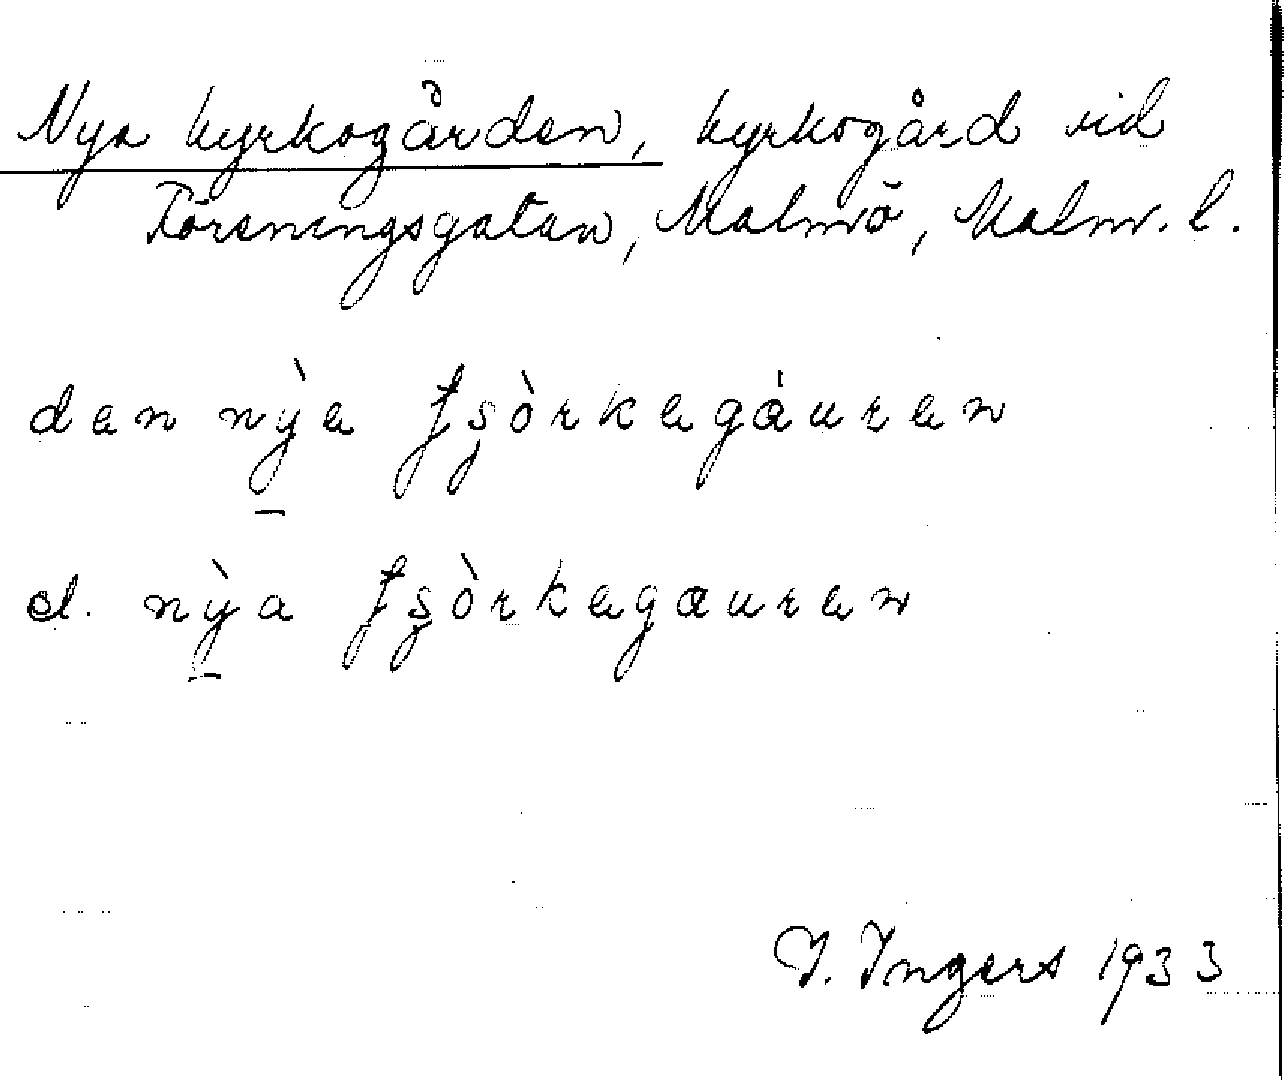 Nya kyrkogården, kyrkogård vid
Föreningsgatan, Malmö, Malm. l.
den nỳa ʄʂòrkagáuran
d. nỳa ʄʂòrkagauran
I. Ingers 1933